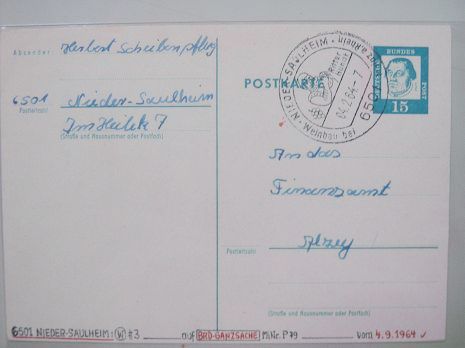 Absender: Herbert
6501 Nieder-Saulheim
Postleitzahl
Im Heilek 7
(Straße und Hausnummer oder Postfach)
POSTKARTE
NIEDER-SAULHEIM
Ritter
Weinbau bei
650
DEUTSCHE
BUNDES
POST
15
An das
Finanzamt
Alzey
Postleitzahl
(Straße und Hausnummer oder Postfach)
6501 NIEDER-SAULHEIM: W #3 auf BRD-GANZSACHE Mi.Nr. P 79 vom 4.9.1964